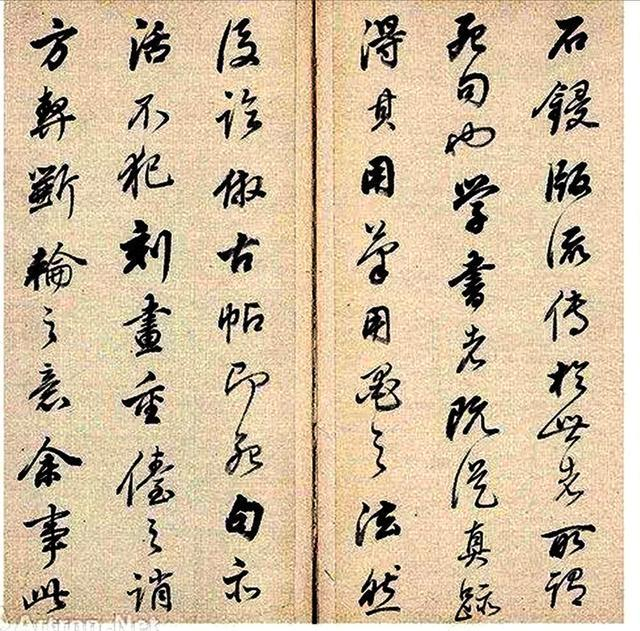 石鋟版流传於世者所謂
死句也学書者既從真跡
得其用筆用墨之法然
後臨倣古帖即死句亦
活不犯刻畫重儓之誚
方契斲輪之意余事此
Artron.Net